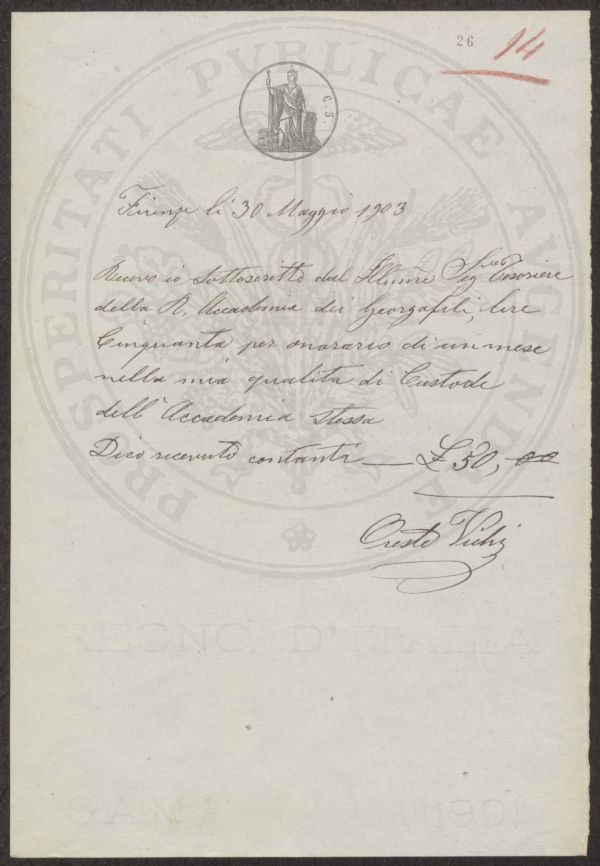 26 14
C. 5.
Firenze li 30 Maggio 1903
Ricevo io sottoscritto dal Illmo Sig Tesoriere
della R. Accademia dei Georgofili, lire
Cinquanta per onorario di un mese
nella mia qualità di Custode
dell' Accademia stessa
Dico ricevuto contanti — £ 50, 00
Oreste Vichi
PROSPERITATI PVBLICAE AVGENDAE
REGNO D'ITALIA
1901